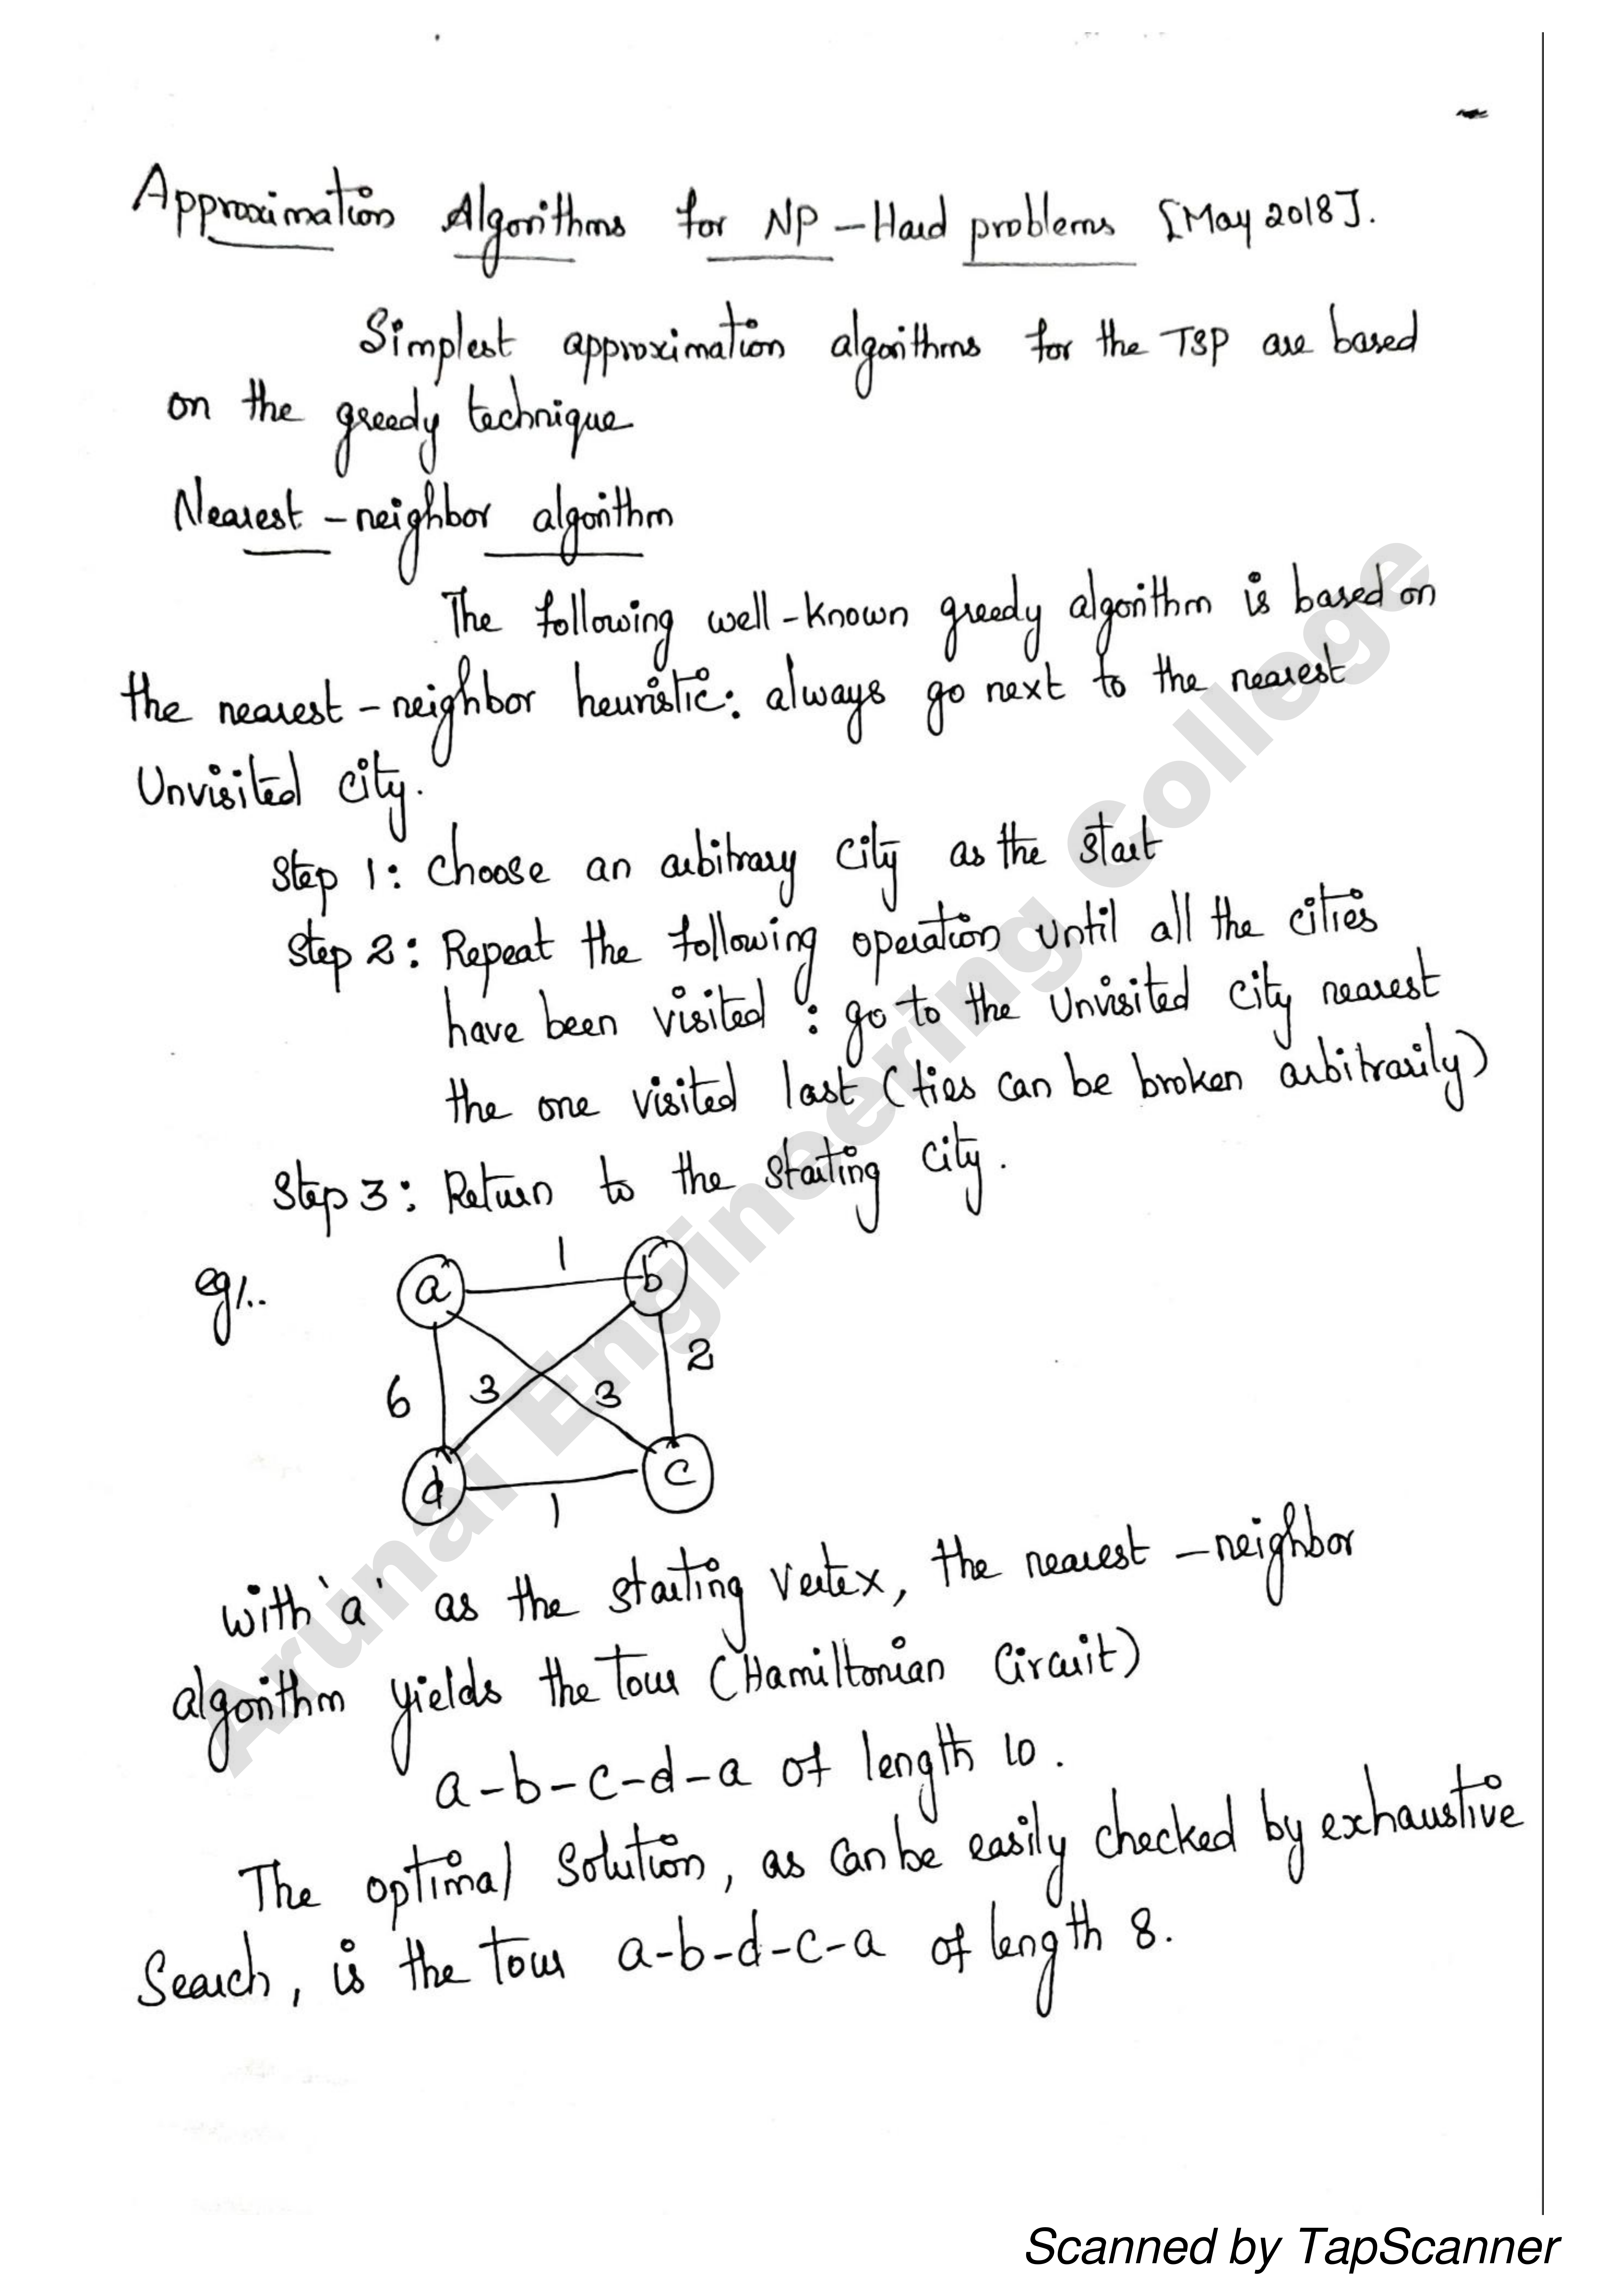 Approximation Algorithms for NP-Hard problems [May 2018].
Simplest approximation algorithms for the TSP are based
on the greedy technique
Nearest-neighbor algorithm
The following well-known greedy algorithm is based on
the nearest-neighbor heuristic: always go next to the nearest
Unvisited city.
Step 1: Choose an arbitrary city as the start
Step 2: Repeat the following operation until all the cities
have been visited : go to the Unvisited city nearest
the one visited last (ties can be broken arbitrarily)
Step 3: Return to the starting city.
eg:
a 1 b
6 3 3 2
d 1 c
with 'a' as the starting vertex, the nearest-neighbor
algorithm yields the tour (Hamiltonian Circuit)
a-b-c-d-a of length 10.
The optimal Solution, as can be easily checked by exhaustive
Search, is the tour a-b-d-c-a of length 8.
Arunai Engineering College
Scanned by TapScanner